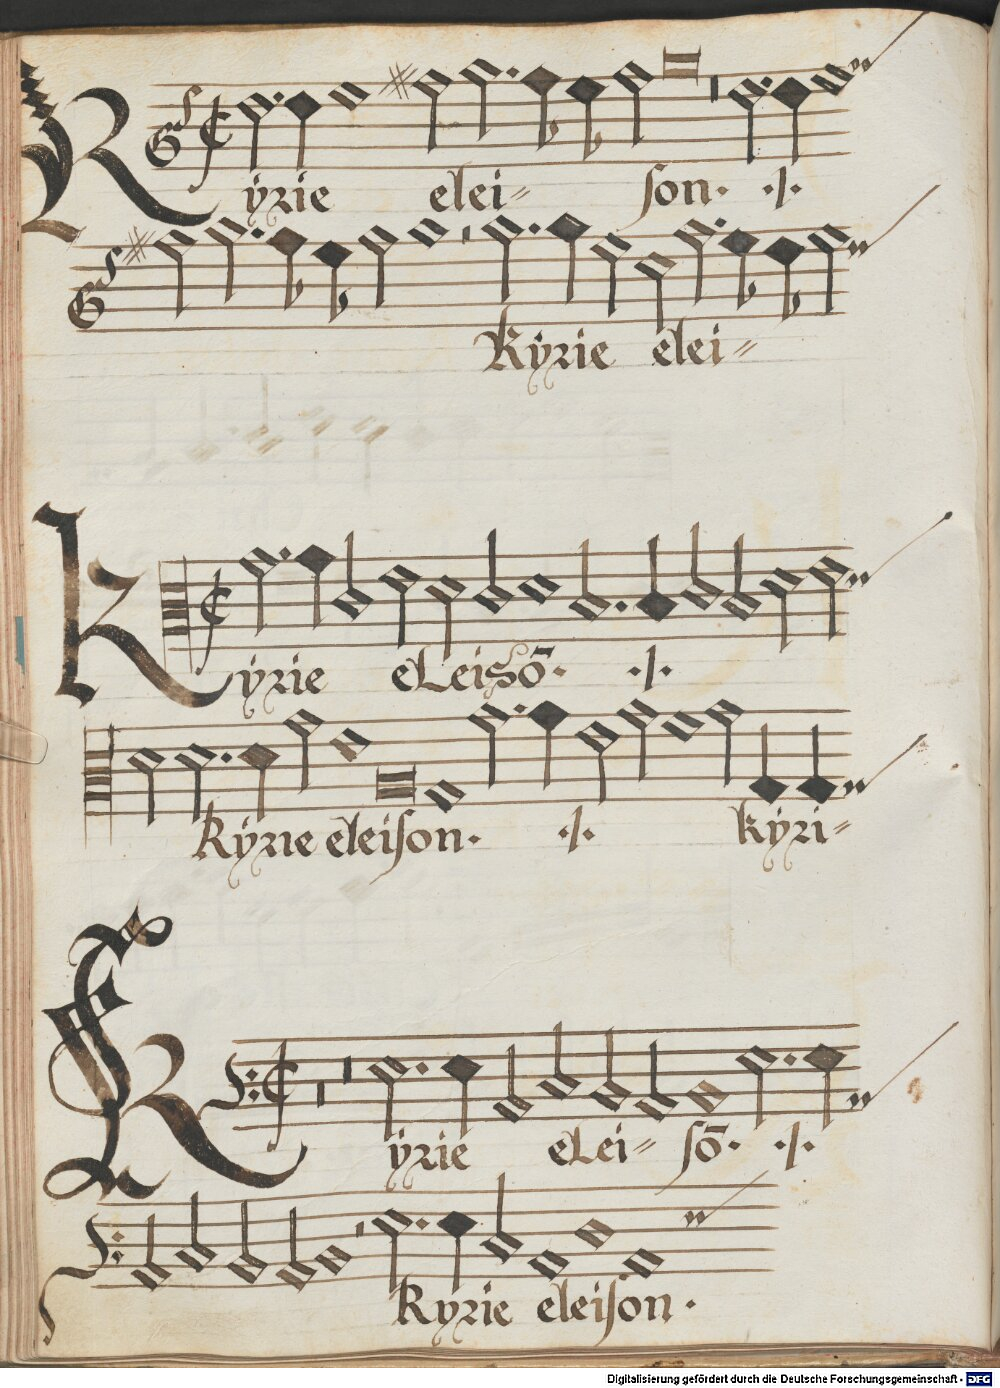 Kÿrie elei= son· ·/·
Kÿrie elei=
Kÿrie eLeisō· ·/·
Kÿrie eleison· ·/· kÿri=
Kÿrie eLei= sō· ·/·
Kyrie eleison·
Digitalisierung gefördert durch die Deutsche Forschungsgemeinschaft - DFG